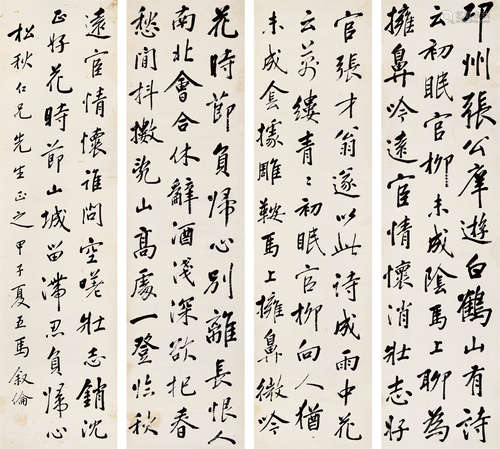 邛州張公庠遊白鶴山有詩
云初眠官柳未成陰馬上聊為
擁鼻吟遠宦情懷消壯志好
花時節負歸心別離長恨人
南北會合休辭酒淺深欲把春
愁閒抖擻亂山高處一登臨秋
官張才翁遂以此詩成雨中花
云萬縷青青初眠官柳向人猶
未成陰據雕鞍馬上擁鼻微吟
遠宦情懷誰問空嗟壯志銷沈
正好花時節山城留滯忍負歸心
松秋仁兄先生正之 甲子夏五馬叙倫